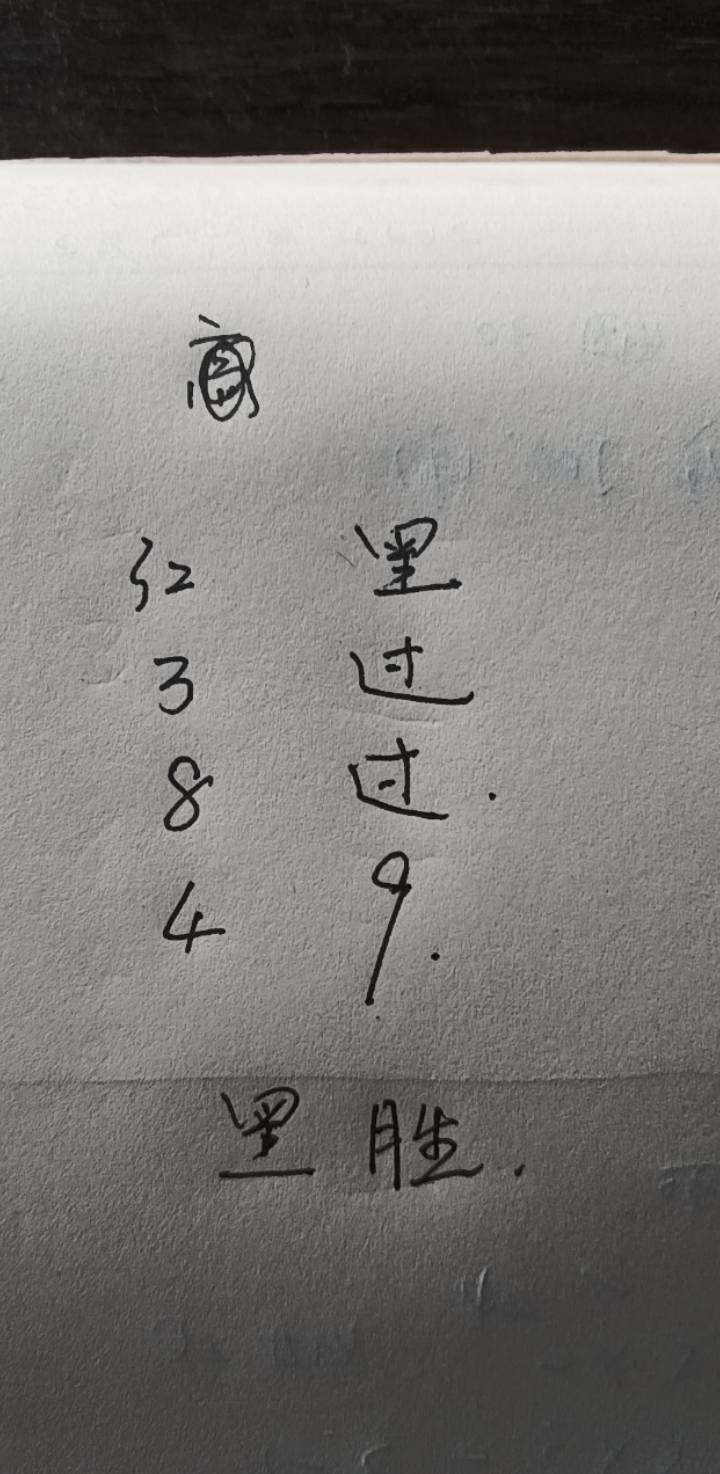 红 黑
3 过
8 过.
4 9.
黑胜.